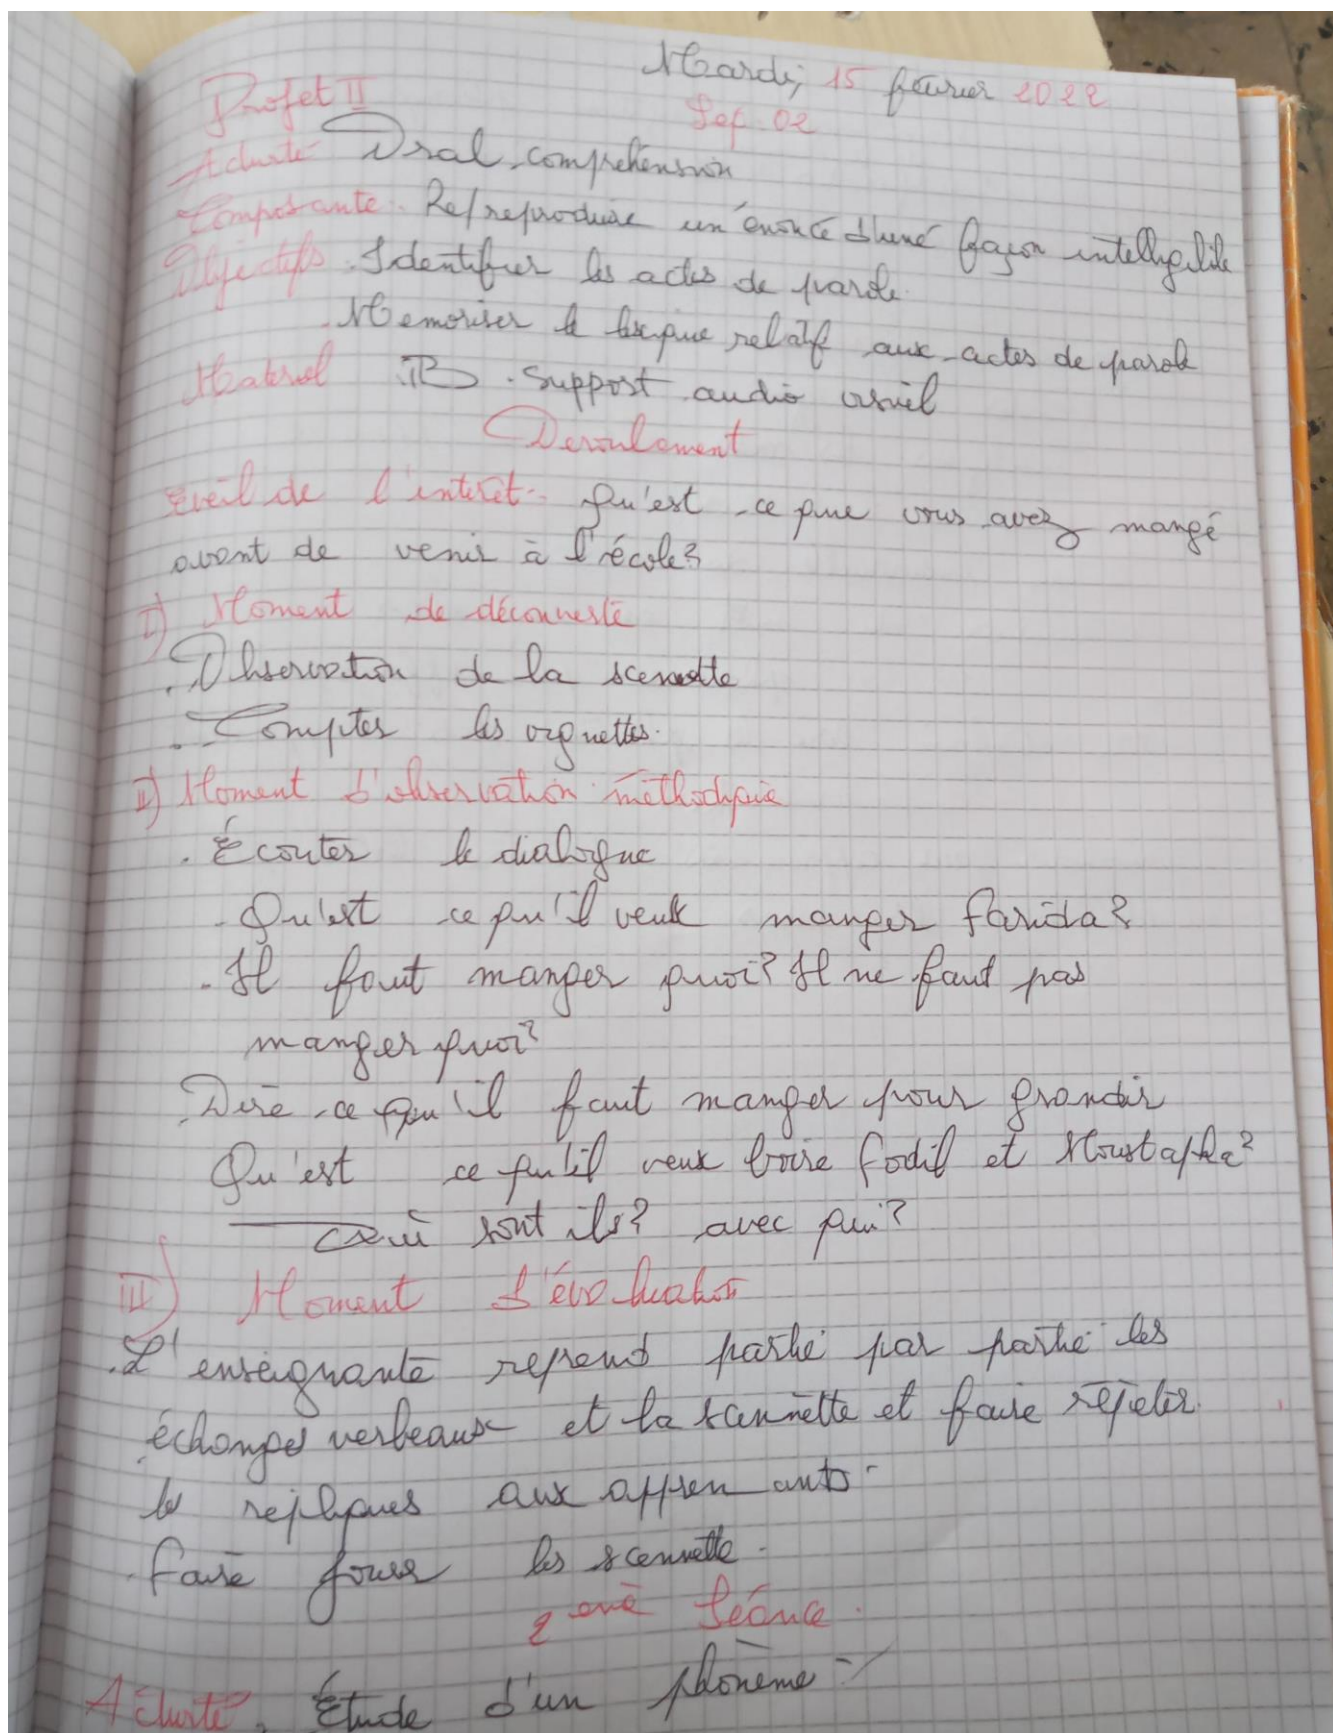 Mardi, 15 février 2022
Projet II
Seq 02
Activité Oral compréhension
Composante. Re/reproduire un énoncé d'une façon intelligible
Objectifs. Identifier les actes de parole.
. Memoriser le lexique relatif aux actes de parole
Materiel . Support audio visuel
Deroulement
Eveil de l'interêt.. Qu'est-ce que vous avez mangé
avant de venir à l'école?
I) Moment de découverte
. Observation de la scenette
. Compter les vignettes.
II) Moment d'observation méthodique
. Écouter le dialogue
. Qu'est ce qu'il veut manger Farida?
. Il faut manger quoi? Il ne faut pas
manger quoi?
. Dire ce qu'il faut manger pour grandir
Qu'est ce qu'il veux boire Fodil et Moustapha?
Où sont ils? avec qui?
III) Moment d'évaluation
. L'enseignante reprend partie par partie les
échanges verbeaux et la scennette et faire répéter
les répliques aux apprenants.
. Faire jouer les scennette.
2 eme Séance.
Activité. Étude d'un phonème